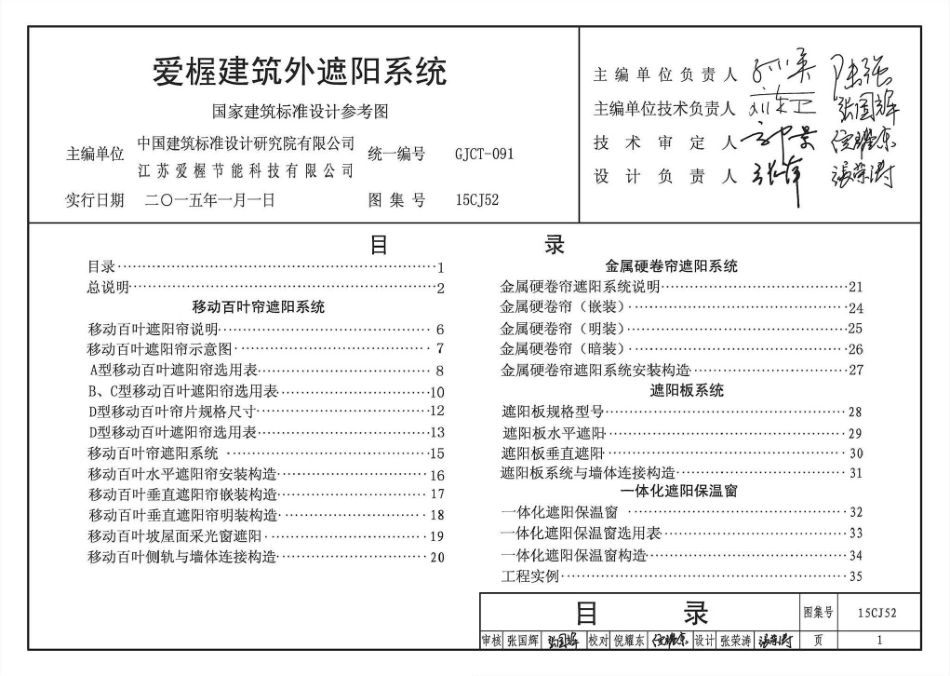 爱楃建筑外遮阳系统
国家建筑标准设计参考图
主编单位 中国建筑标准设计研究院有限公司
江苏爱楃节能科技有限公司
统一编号 GJCT-091
实行日期 二〇一五年一月一日 图集号 15CJ52
主编单位负责人
主编单位技术负责人 张国辉
技术审定人
设计负责人 張荣涛
目 录
目录……1
总说明……2
移动百叶帘遮阳系统
移动百叶遮阳帘说明……6
移动百叶遮阳帘示意图……7
A型移动百叶遮阳帘选用表……8
B、C型移动百叶遮阳帘选用表……10
D型移动百叶帘片规格尺寸……12
D型移动百叶遮阳帘选用表……13
移动百叶帘遮阳系统……15
移动百叶水平遮阳帘安装构造……16
移动百叶垂直遮阳帘嵌装构造……17
移动百叶垂直遮阳帘明装构造……18
移动百叶坡屋面采光窗遮阳……19
移动百叶侧轨与墙体连接构造……20
金属硬卷帘遮阳系统
金属硬卷帘遮阳系统说明……21
金属硬卷帘（嵌装）……24
金属硬卷帘（明装）……25
金属硬卷帘（暗装）……26
金属硬卷帘遮阳系统安装构造……27
遮阳板系统
遮阳板规格型号……28
遮阳板水平遮阳……29
遮阳板垂直遮阳……30
遮阳板系统与墙体连接构造……31
一体化遮阳保温窗
一体化遮阳保温窗……32
一体化遮阳保温窗选用表……33
一体化遮阳保温窗构造……34
工程实例……35
目 录 图集号 15CJ52
审核 张国辉 张国辉 校对 倪耀东 倪耀东 设计 张荣涛 張荣涛 页 1